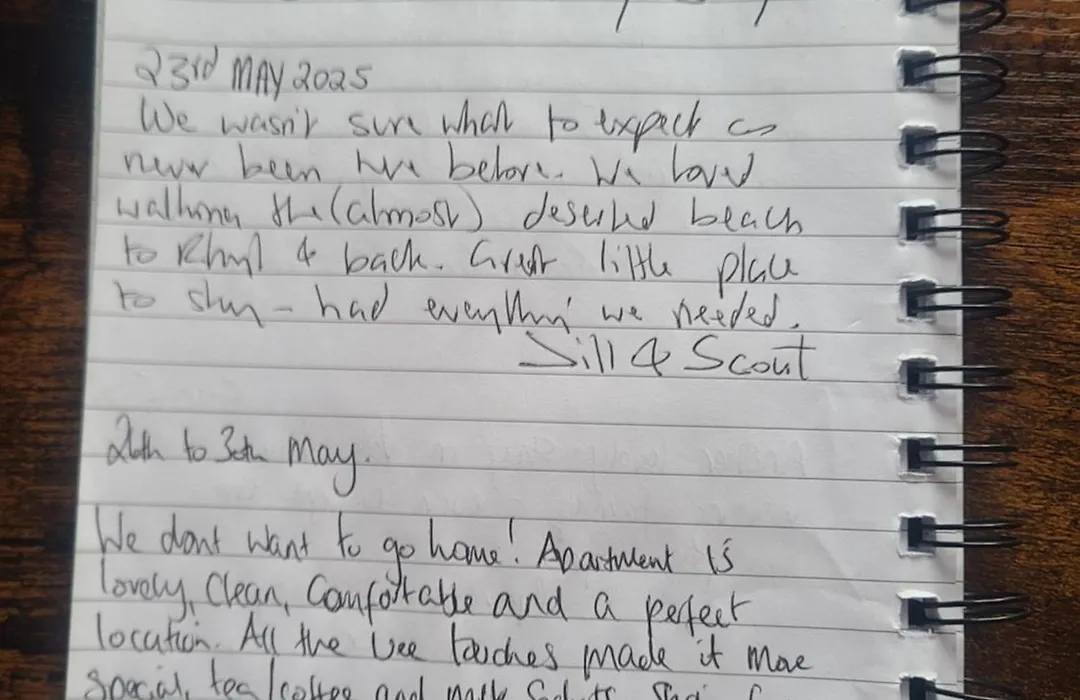 23rd MAY 2025
We wasn't sure what to expect as
never been here before. We loved
walking the (almost) deserted beach
to Rhyl & back. Great little place
to stay - had everything we needed.
Jill & Scout
26th to 30th May.
We dont want to go home! Apartment is
lovely, Clean, Comfortable and a perfect
location. All the wee touches made it more
special, tea/coffee and milk